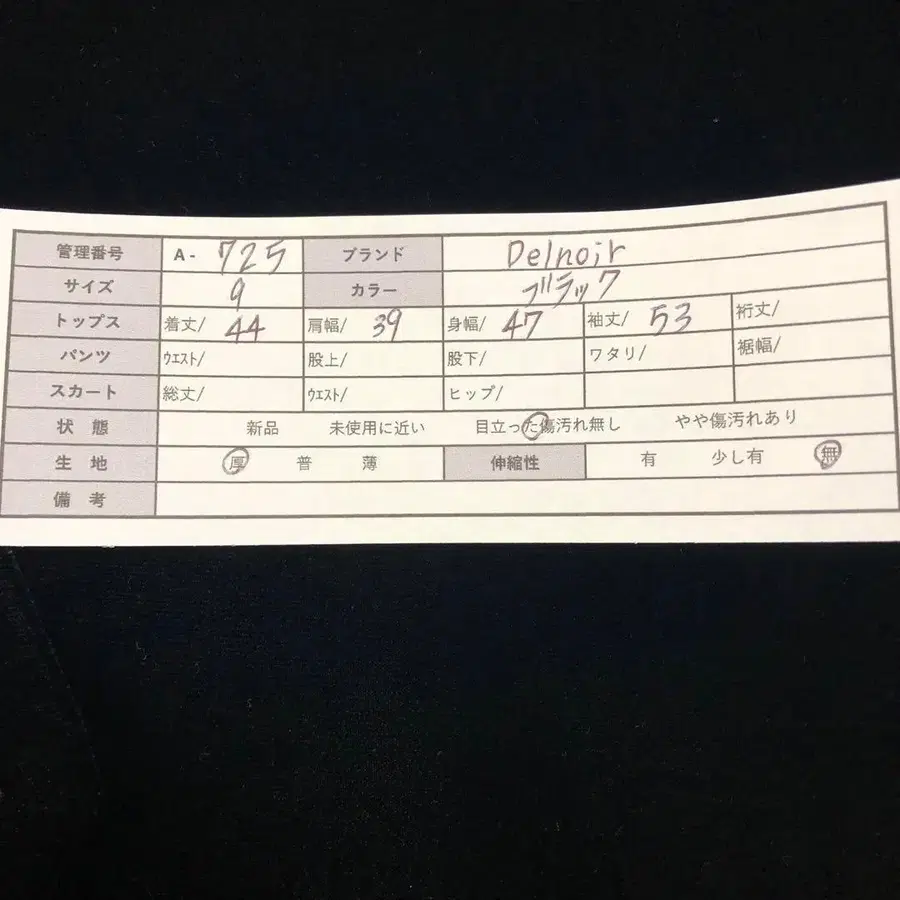 管理番号 A- 725 ブランド Delnoir
サイズ 9 カラー ブラック
トップス 着丈/ 44 肩幅/ 39 身幅/ 47 袖丈/ 53 裄丈/
パンツ ウエスト/ 股上/ 股下/ ワタリ/ 裾幅/
スカート 総丈/ ウエスト/ ヒップ/
状 態 新品 未使用に近い 目立った傷汚れ無し やや傷汚れあり
生 地 厚 普 薄 伸縮性 有 少し有 無
備 考